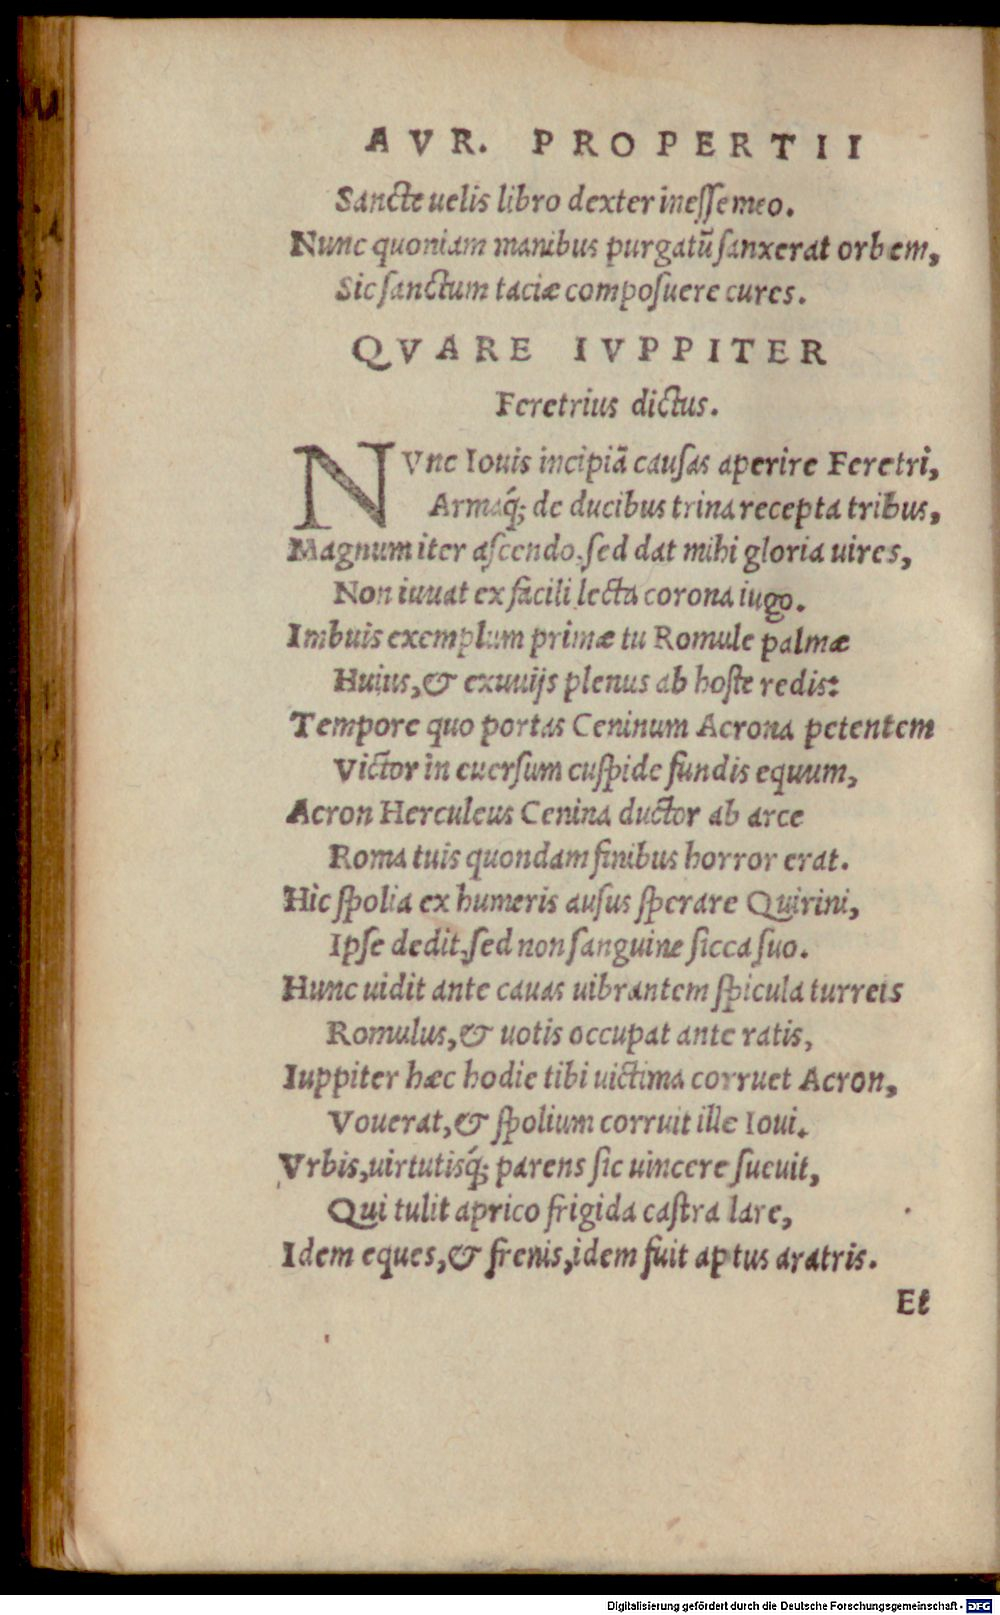 AVR. PROPERTII
Sancte uelis libro dexter inesse meo.
Nunc quoniam manibus purgatū sanxerat orbem,
Sic sanctum taciæ composuere cures.
QVARE IVPPITER
Feretrius dictus.
NVnc Iouis incipiā causas aperire Feretri,
Armaq́; de ducibus trina recepta tribus,
Magnum iter ascendo, sed dat mihi gloria uires,
Non iuuat ex facili lecta corona iugo.
Imbuis exemplum primæ tu Romule palmæ
Huius, & exuuijs plenus ab hoste redis:
Tempore quo portas Ceninum Acrona petentem
Victor in euersum cuspide fundis equum,
Acron Herculeus Cenina ductor ab arce
Roma tuis quondam finibus horror erat.
Hic spolia ex humeris ausus sperare Quirini,
Ipse dedit, sed non sanguine sicca suo.
Hunc uidit ante cauas uibrantem spicula turreis
Romulus, & uotis occupat ante ratis,
Iuppiter hæc hodie tibi uictima corruet Acron,
Vouerat, & spolium corruit ille Ioui.
Vrbis, uirtutisq́; parens sic uincere sueuit,
Qui tulit aprico frigida castra lare,
Idem eques, & frenis, idem fuit aptus aratris.
Et
Digitalisierung gefördert durch die Deutsche Forschungsgemeinschaft - DFG